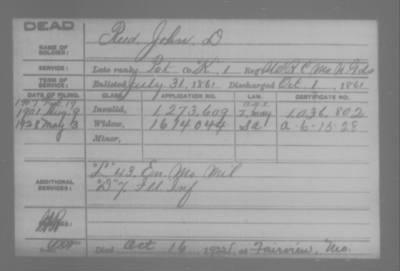 DEAD
NAME OF SOLDIER: Reed, John, D
SERVICE: Late rank, Pvt Co. K, 1 Reg't
TERM OF SERVICE: Enlisted July 31, 1861 Discharged Oct 1, 1861
DATE OF FILING. CLASS. APPLICATION NO. LAW. CERTIFICATE NO.
Invalid, 1,273,609 1,036,802
1928 May 3 Widow, 1614044 a-6-15-28
Minor,
ADDITIONAL SERVICES: "L" 43, En. Mo Mil
"D" 7, Ill Inf
Died Oct 16, 1925, at Fairview, Mo.